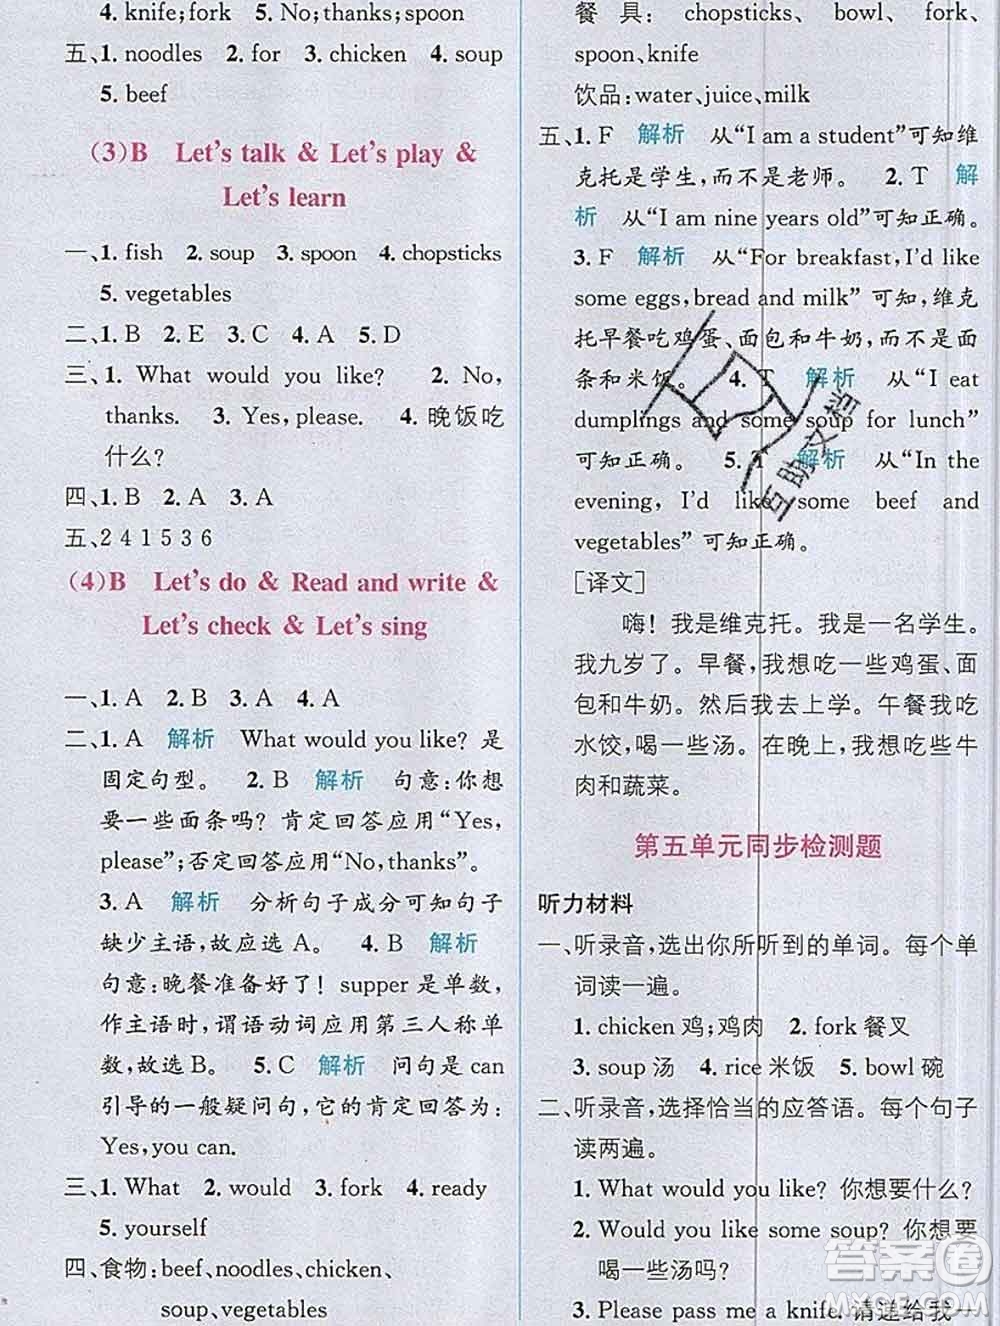 4. knife;fork 5. No;thanks;spoon
五、1. noodles 2. for 3. chicken 4. soup
5. beef
(3)B Let's talk & Let's play &
Let's learn
一、1. fish 2. soup 3. spoon 4. chopsticks
5. vegetables
二、1. B 2. E 3. C 4. A 5. D
三、1. What would you like? 2. No,
thanks. 3. Yes, please. 4. 晚饭吃
什么?
四、1. B 2. A 3. A
五、2 4 1 5 3 6
(4)B Let's do & Read and write &
Let's check & Let's sing
一、1. A 2. B 3. A 4. A
二、1. A 解析 What would you like? 是
固定句型。 2. B 解析 句意:你想
要一些面条吗? 肯定回答应用“Yes,
please”;否定回答应用“No, thanks”。
3. A 解析 分析句子成分可知句子
缺少主语,故应选 A。 4. B 解析
句意:晚餐准备好了! supper 是单数,
作主语时,谓语动词应用第三人称单
数,故选 B。 5. C 解析 问句是 can
引导的一般疑问句,它的肯定回答为:
Yes, you can.
三、1. What 2. would 3. fork 4. ready
5. yourself
四、食物:beef、noodles、chicken、
soup、vegetables
餐具: chopsticks、 bowl、 fork、
spoon、knife
饮品:water、juice、milk
五、1. F 解析 从“I am a student”可知维
克托是学生,而不是老师。 2. T 解
析 从“I am nine years old”可知正确。
3. F 解析 从“For breakfast, I'd like
some eggs, bread and milk” 可知,维克
托早餐吃鸡蛋、面包和牛奶,而不是面
条和米饭。 4. T 解析 从“I eat
dumplings and some soup for lunch”
可知正确。 5. T 解析 从“In the
evening, I'd like some beef and
vegetables” 可知正确。
[译文]
嗨! 我是维克托。我是一名学生。
我九岁了。早餐,我想吃一些鸡蛋、面
包和牛奶。然后我去上学。午餐我吃
水饺,喝一些汤。在晚上,我想吃些牛
肉和蔬菜。
第五单元同步检测题
听力材料
一、听录音,选出你所听到的单词。每个单
词读一遍。
1. chicken 鸡;鸡肉 2. fork 餐叉
3. soup 汤 4. rice 米饭 5. bowl 碗
二、听录音,选择恰当的应答语。每个句子
读两遍。
1. What would you like? 你想要什么?
2. Would you like some soup? 你想要
喝一些汤吗?
3. Please pass me a knife. 请递给我一
互助文档
答案圈